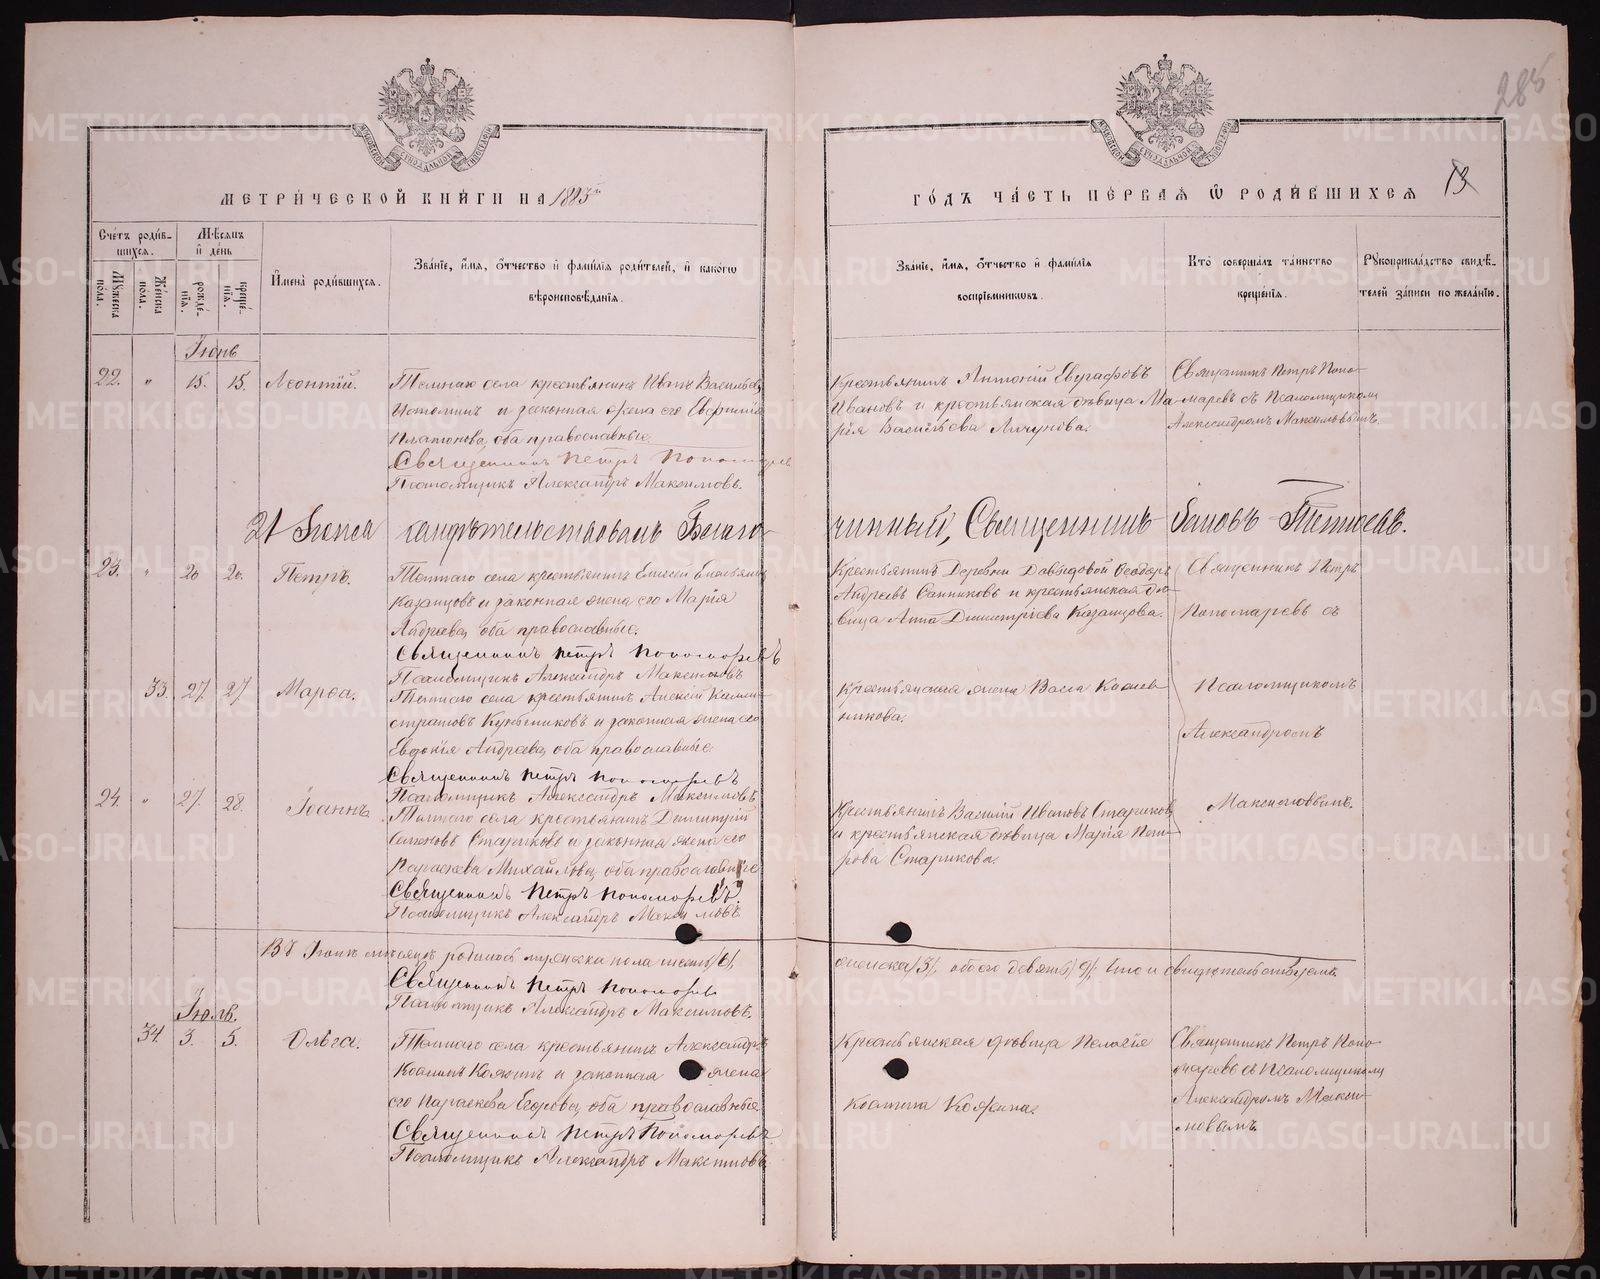 285
13
МЕТРИЧЕСКОЙ КНИГИ НА 1895
ГОДЪ ЧАСТЬ ПЕРВАЯ Ѿ РОДИВШИХСЯ
Счетъ родив-
шихся.
Мѣсяцъ
и день
Мужеска
пола.
Женска
пола.
рожде-
нія.
креще-
нія.
Имена родившихся.
Званіе, имя, отчество и фамилія родителей, и какого
вѣроисповѣданія.
Званіе, имя, отчество и фамилія
воспріемниковъ.
Кто совершалъ таинство
крещенія.
Рукоприкладство свидѣ-
телей записи по желанію.
Іюнь
22. " 15. 15. Леонтій.
села крестьянинъ Иванъ Васильевъ
и законная жена его Евфимія
Платонова, оба православные.
Священникъ Петръ Пономаревъ
Псаломщикъ Александръ Максимовъ.
Крестьянинъ Антоній Евграфовъ
Ивановъ и крестьянская дѣвица Ма-
рія Васильева
Священникъ Петръ Поно-
маревъ съ Псаломщикомъ
Александромъ Максимовымъ.
21 Іюня свидѣтельствовалъ Благо-
чинный, Священникъ
23. " 20 20. Петръ.
села крестьянинъ Елисей
Казанцовъ и законная жена его Марія
Андреева, оба православные.
Священникъ Петръ Пономаревъ
Псаломщикъ Александръ Максимовъ
Крестьянинъ Деревни Давыдовой Ѳеодоръ
Андреевъ Санниковъ и крестьянская дѣ-
вица Анна Димитріева Казанцова.
Священникъ Петръ
Пономаревъ съ
Псаломщикомъ
Александромъ
Максимовымъ.
33. 27. 27 Марѳа.
села крестьянинъ Алексій
и законная жена его
Евдокія Андреева, оба православные.
Священникъ Петръ Пономаревъ
Псаломщикъ Александръ Максимовъ
Крестьянская жена Васса
24. " 27. 28. Іоаннъ.
села крестьянинъ Димитрій
Стариковъ и законная жена его
Параскева Михайлова, оба православные
Священникъ Петръ Пономаревъ.
Псаломщикъ Александръ Максимовъ.
Крестьянинъ Василій Ивановъ Стариковъ
и крестьянская дѣвица Марія Пет-
рова Старикова.
Въ Іюнѣ мѣсяцѣ родилось мужеска пола шесть /6/,
женска /3/, обоего девять /9/, что и свидѣтельствуемъ
Священникъ Петръ Пономаревъ
Псаломщикъ Александръ Максимовъ.
Іюль.
34. 3. 5. Ольга.
села крестьянинъ Александръ
и законная жена
его Параскева Егорова, оба православные
Священникъ Петръ Пономаревъ.
Псаломщикъ Александръ Максимовъ
Крестьянская дѣвица Пелагія
Священникъ Петръ Поно-
маревъ съ Псаломщикомъ
Александромъ Макси-
мовымъ.
METRIKI.GASO-URAL.RU